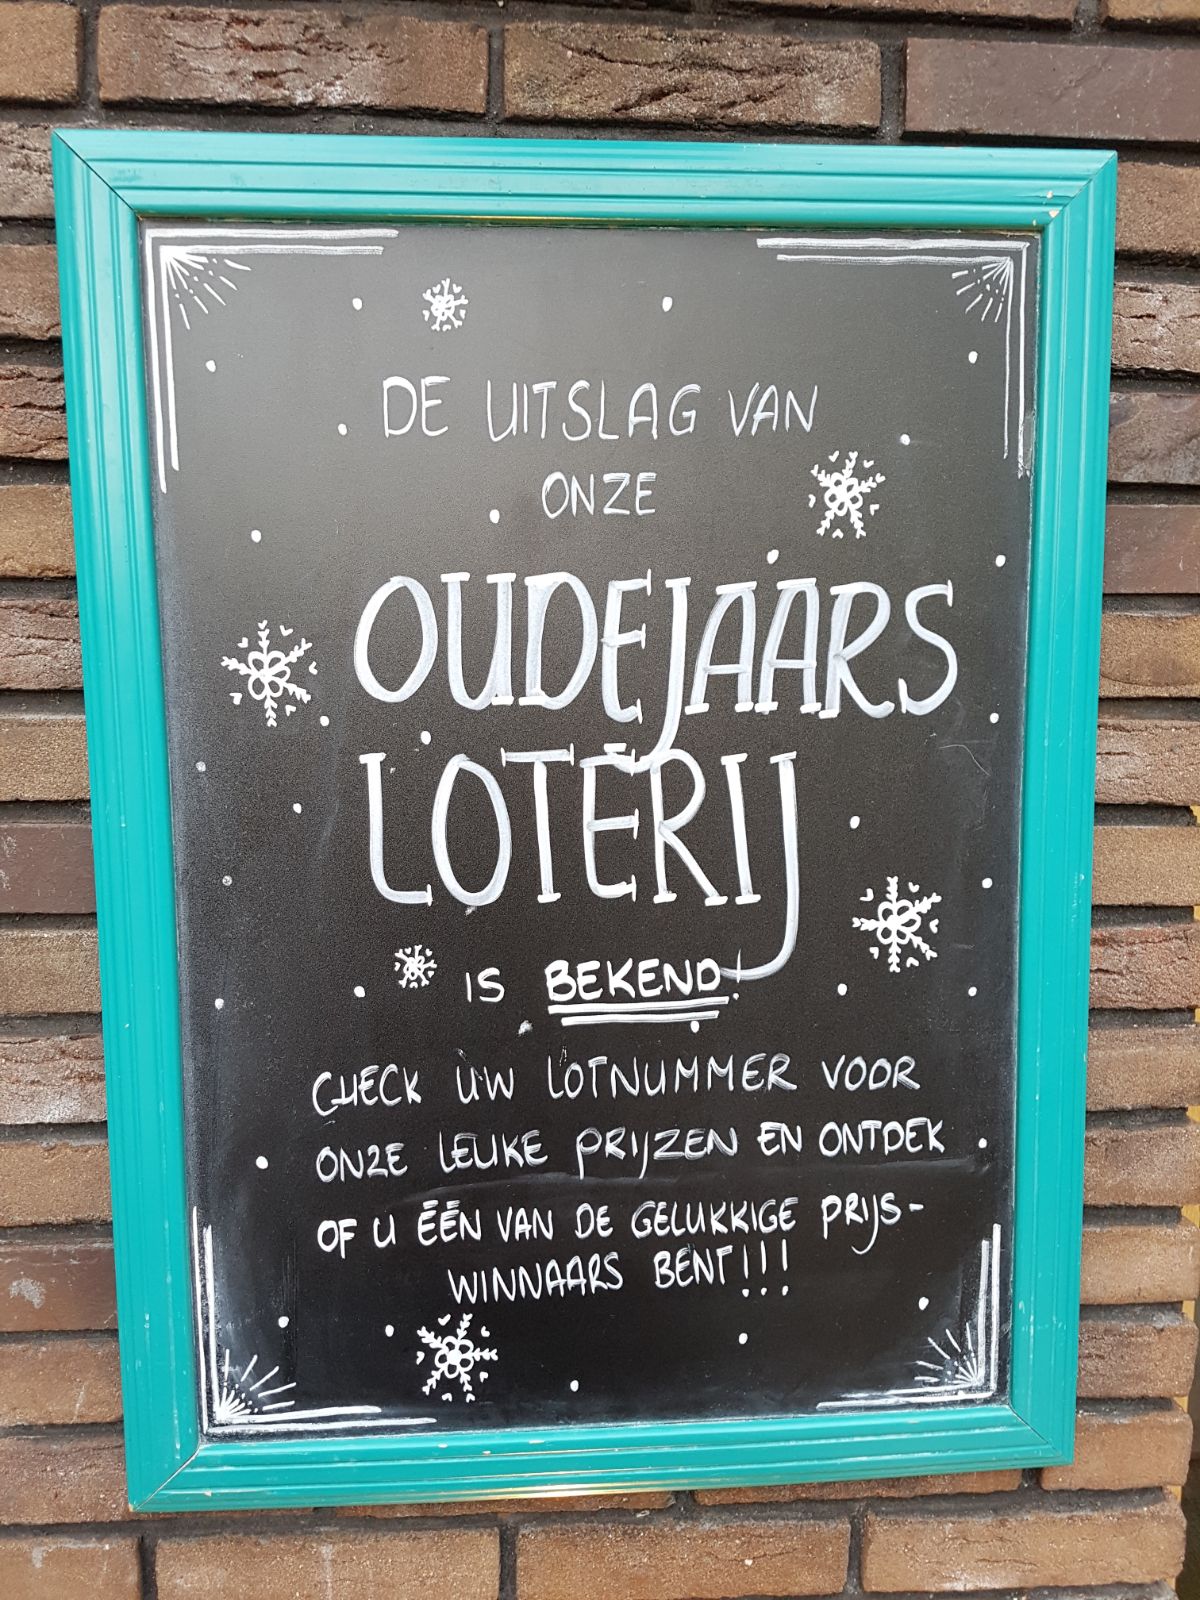 DE UITSLAG VAN
ONZE
OUDEJAARS
LOTERIJ
IS BEKEND!
CHECK UW LOTNUMMER VOOR
ONZE LEUKE PRIJZEN EN ONTDEK
OF U ÉÉN VAN DE GELUKKIGE PRIJS-
WINNAARS BENT!!!